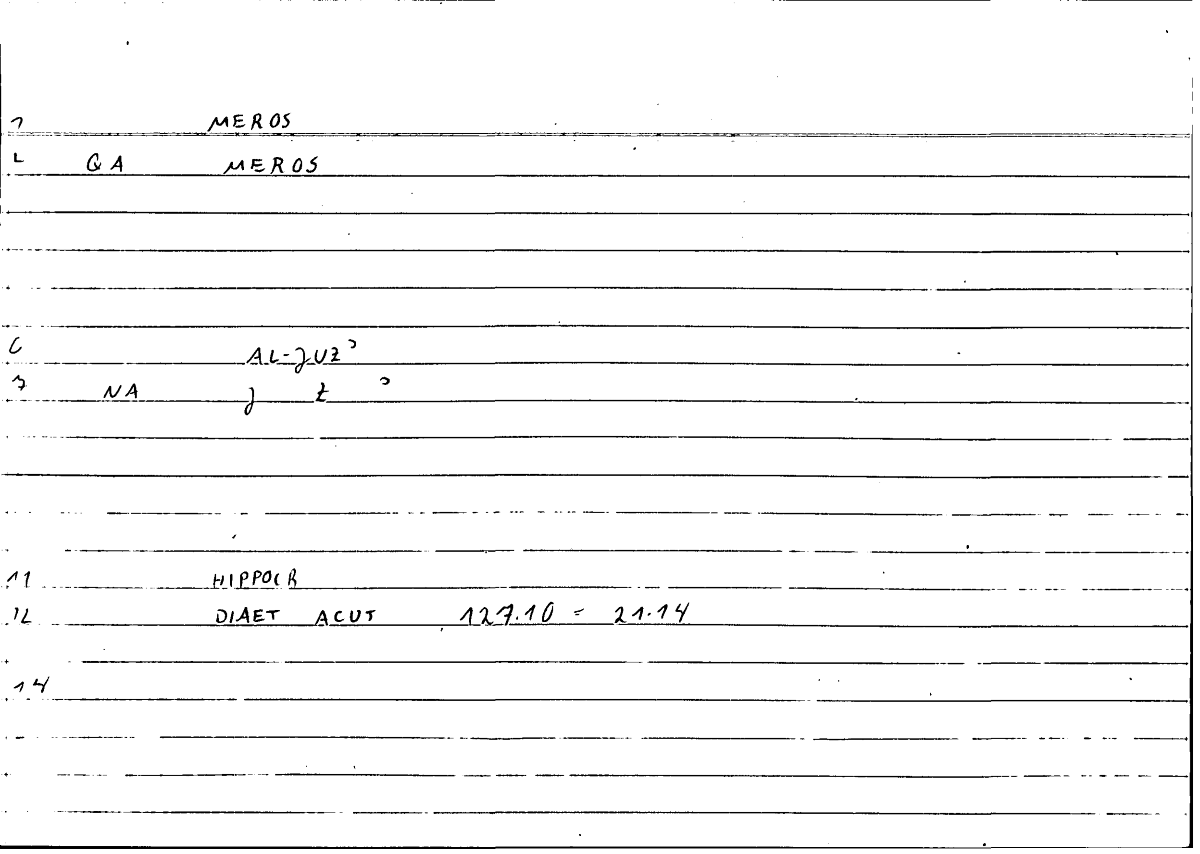 1 MEROS
2 GA MEROS
6 AL-JUZʾ
7 NA j z ʾ
11 HIPPOCR
12 DIAET ACUT 127.10 = 21.14
14